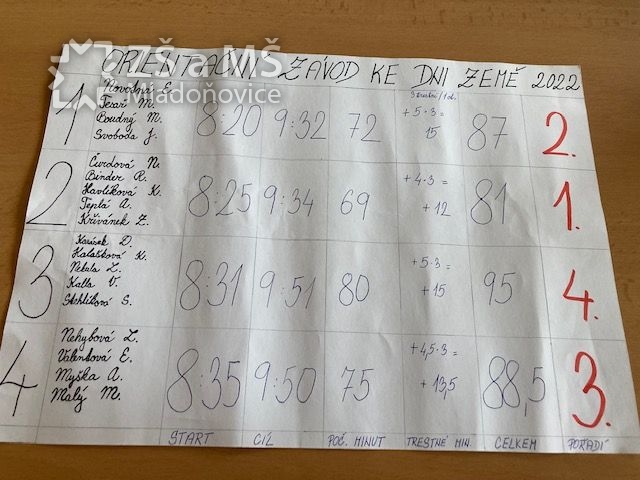 ZŠ a MŠ
Mladoňovice
ORIENTAČNÍ ZÁVOD KE DNI ZEMĚ 2022
1
Novodná E.
Tesař M.
Boudný M.
Svoboda J.
8:20 9:32 72
+5·3=
15
87 2.
2
Čurdová N.
Binder R.
Havlíková K.
Teplá A.
Křivánek Z.
8:25 9:34 69
+4·3=
+12
81 1.
3
Karásek D.
Halašková K.
Nekula L.
Kalla V.
Stehlíková S.
8:31 9:51 80
+5·3=
+15
95 4.
4
Nehybová L.
Valentová E.
Myška A.
Malý M.
8:35 9:50 75
+4,5·3=
+13,5
88,5 3.
START CÍL POČ. MINUT TRESTNÉ MIN. CELKEM POŘADÍ